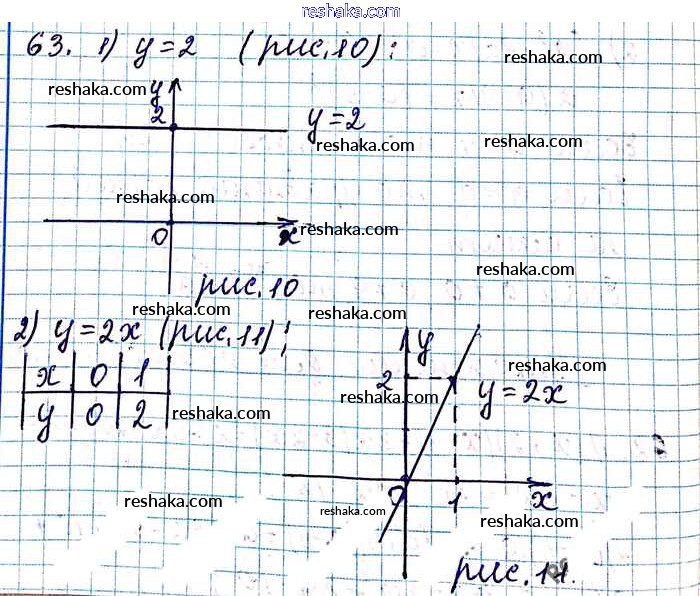 reshaka.com
63. 1) y=2 (рис.10):
reshaka.com
reshaka.com
y
2
y=2
reshaka.com
reshaka.com
reshaka.com
0
x
reshaka.com
reshaka.com
рис.10
reshaka.com
reshaka.com
2) y=2x (рис.11);
x 0 1
y 0 2
reshaka.com
y
2
reshaka.com
reshaka.com
y=2x
reshaka.com
reshaka.com
0
1
x
reshaka.com
reshaka.com
рис.11.